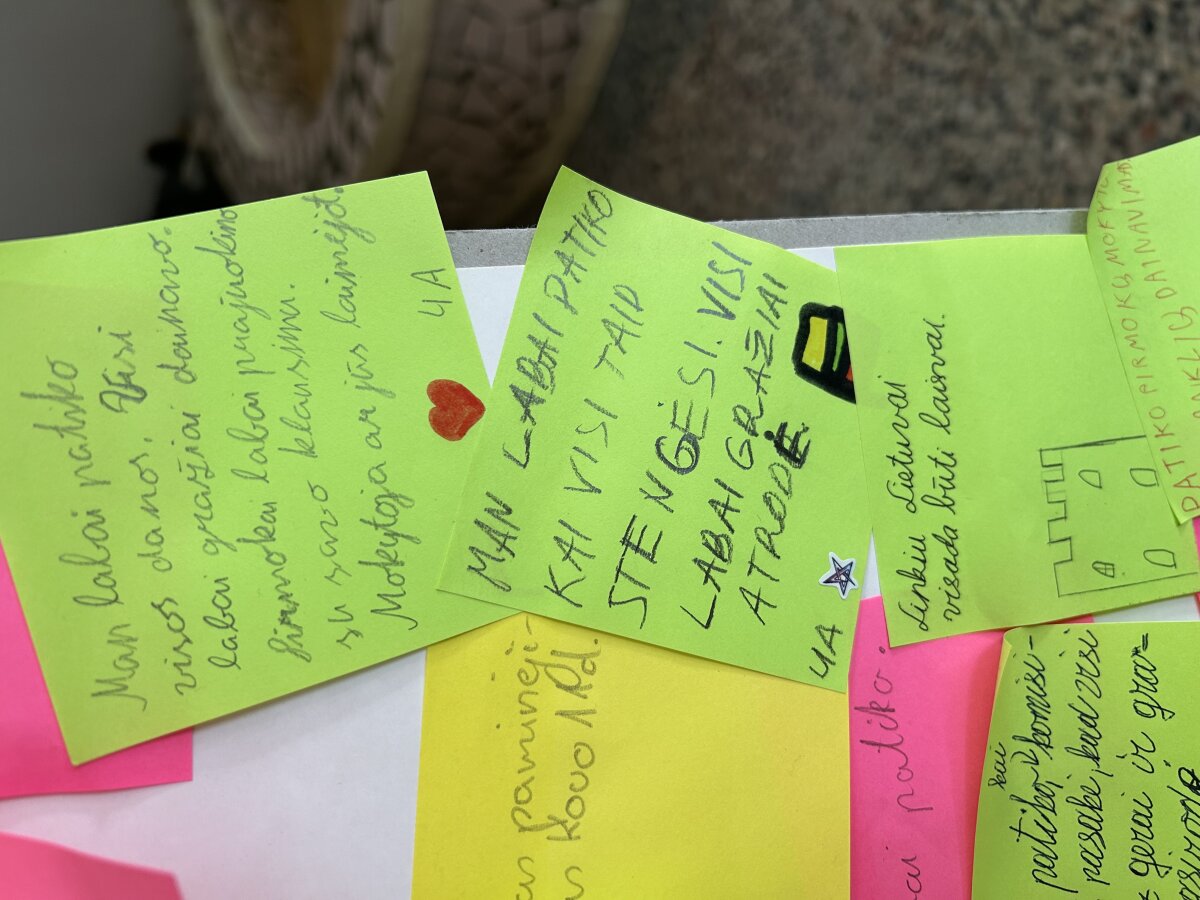 Man labai patiko
visos danos. Visi
labai gražiai dainavo.
Pirmokai labai prajuokino
su savo klausimu.
Mokytoja ar jūs laimėjot.
4A
MAN LABAI PATIKO
KAI VISI TAIP
STENGĖSI. VISI
LABAI GRAŽIAI
ATRODĖ.
4A
Linkiu Lietuvai
visada būti laisvai.
PATIKO PIRMOKŲ MOKYTO
DAINAVIMAS
paminėji-
Kovo 11d.
patiko.
kai
patiko, komisi-
pasakė, kad visi
gerai ir gra-